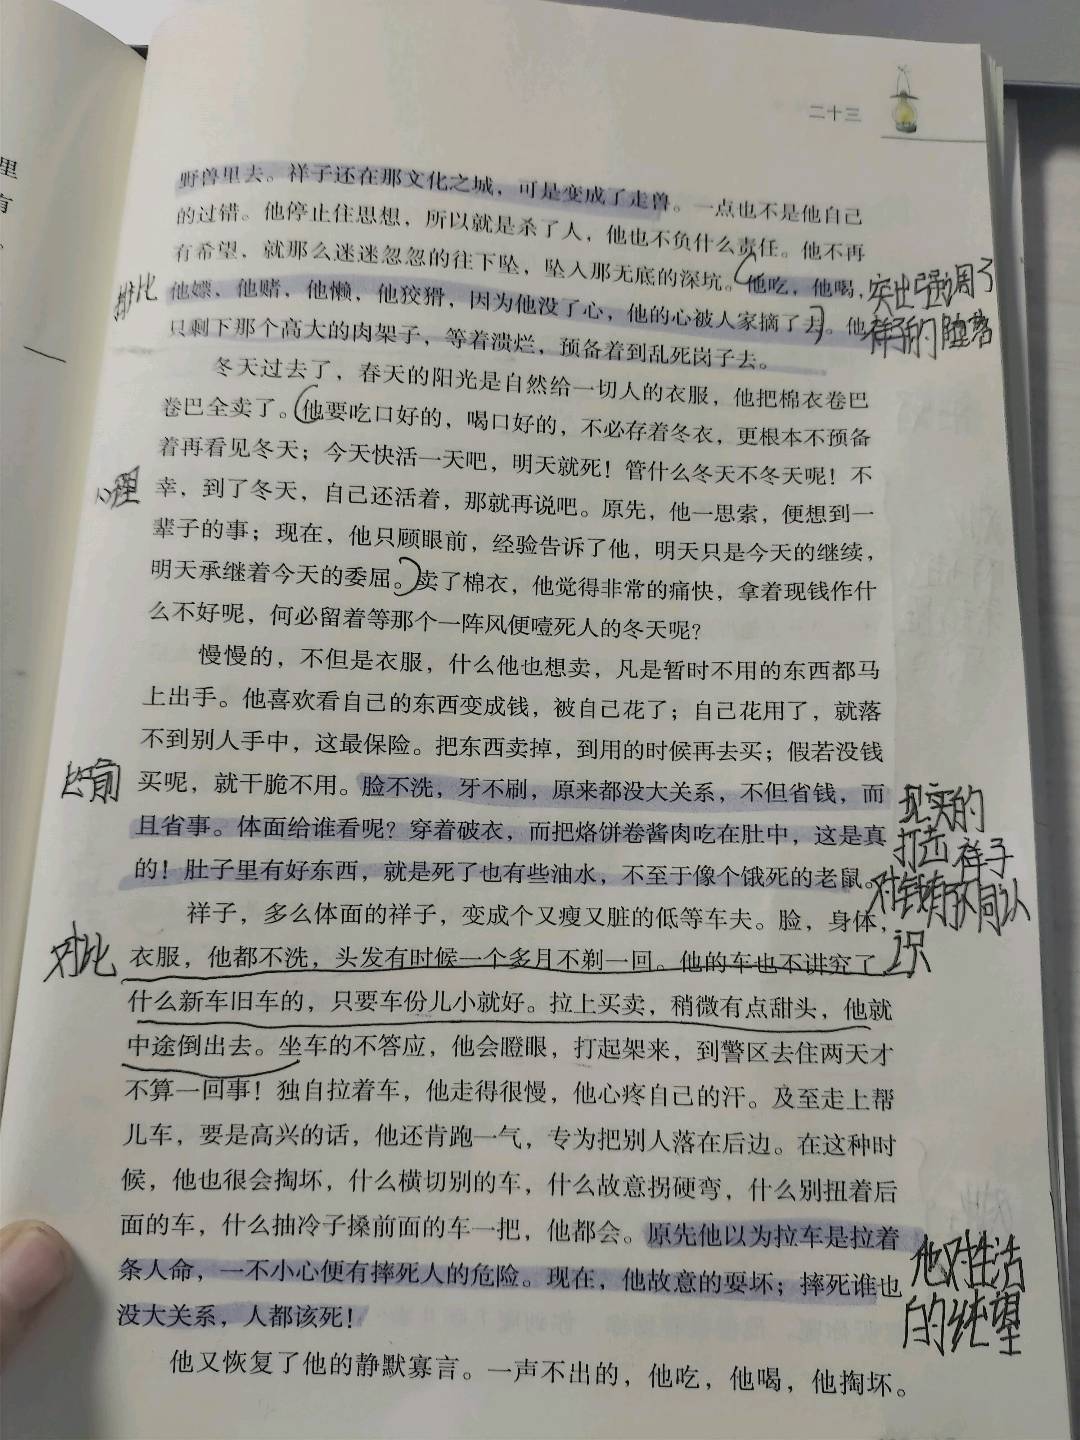 里
有
二十三
野兽里去。祥子还在那文化之城，可是变成了走兽。一点也不是他自己
的过错。他停止住思想，所以就是杀了人，他也不负什么责任。他不再
有希望，就那么迷迷忽忽的往下坠，坠入那无底的深坑。他吃，他喝，
他嫖，他赌，他懒，他狡猾，因为他没了心，他的心被人家摘了去。他
只剩下那个高大的肉架子，等着溃烂，预备着到乱死岗子去。
排比
突出强调了
祥子的堕落
冬天过去了，春天的阳光是自然给一切人的衣服，他把棉衣卷巴
卷巴全卖了。他要吃口好的，喝口好的，不必存着冬衣，更根本不预备
着再看见冬天；今天快活一天吧，明天就死！管什么冬天不冬天呢！不
幸，到了冬天，自己还活着，那就再说吧。原先，他一思索，便想到一
辈子的事；现在，他只顾眼前，经验告诉了他，明天只是今天的继续，
明天承继着今天的委屈。卖了棉衣，他觉得非常的痛快，拿着现钱作什
么不好呢，何必留着等那个一阵风便噎死人的冬天呢？
心理
慢慢的，不但是衣服，什么他也想卖，凡是暂时不用的东西都马
上出手。他喜欢看自己的东西变成钱，被自己花了；自己花用了，就落
不到别人手中，这最保险。把东西卖掉，到用的时候再去买；假若没钱
买呢，就干脆不用。脸不洗，牙不刷，原来都没大关系，不但省钱，而
且省事。体面给谁看呢？穿着破衣，而把烙饼卷酱肉吃在肚中，这是真
的！肚子里有好东西，就是死了也有些油水，不至于像个饿死的老鼠。
比前
现实的
打击 祥子
对钱有不同认
识
祥子，多么体面的祥子，变成个又瘦又脏的低等车夫。脸，身体，
衣服，他都不洗，头发有时候一个多月不剃一回。他的车也不讲究了，
什么新车旧车的，只要车份儿小就好。拉上买卖，稍微有点甜头，他就
中途倒出去。坐车的不答应，他会瞪眼，打起架来，到警区去住两天才
不算一回事！独自拉着车，他走得很慢，他心疼自己的汗。及至走上帮
儿车，要是高兴的话，他还肯跑一气，专为把别人落在后边。在这种时
候，他也很会掏坏，什么横切别的车，什么故意拐硬弯，什么别扭着后
面的车，什么抽冷子搡前面的车一把，他都会。原先他以为拉车是拉着
条人命，一不小心便有摔死人的危险。现在，他故意的耍坏；摔死谁也
没大关系，人都该死！
对比
他对生活
的绝望
他又恢复了他的静默寡言。一声不出的，他吃，他喝，他掏坏。